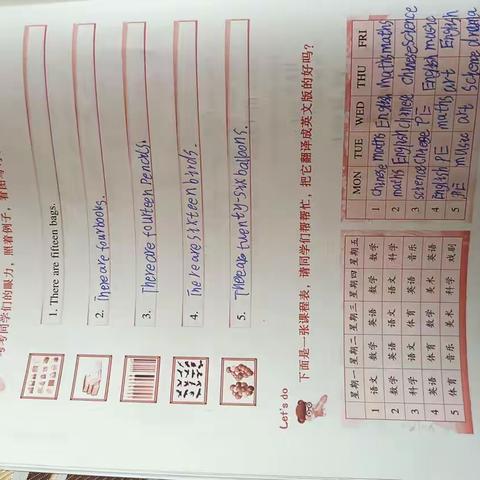 考考同学们的眼力，照着例子，看图写
1. There are fifteen bags.
2. There are four books.
3. There are fourteen pencils.
4. There are sixteen birds.
5. There are twenty-six balloons.
Let's do
下面是一张课程表，请同学们帮帮忙，把它翻译成英文版的好吗？
星期一 星期二 星期三 星期四 星期五
1 语文 数学 英语 数学 数学
2 数学 英语 语文 语文 科学
3 科学 语文 体育 英语 音乐
4 英语 体育 数学 美术 英语
5 体育 音乐 美术 科学 戏剧
MON TUE WED THU FRI
1 chinese maths English maths maths
2 maths English chinese chinese science
3 science chinese PE English music
4 English PE maths art English
5 PE music art